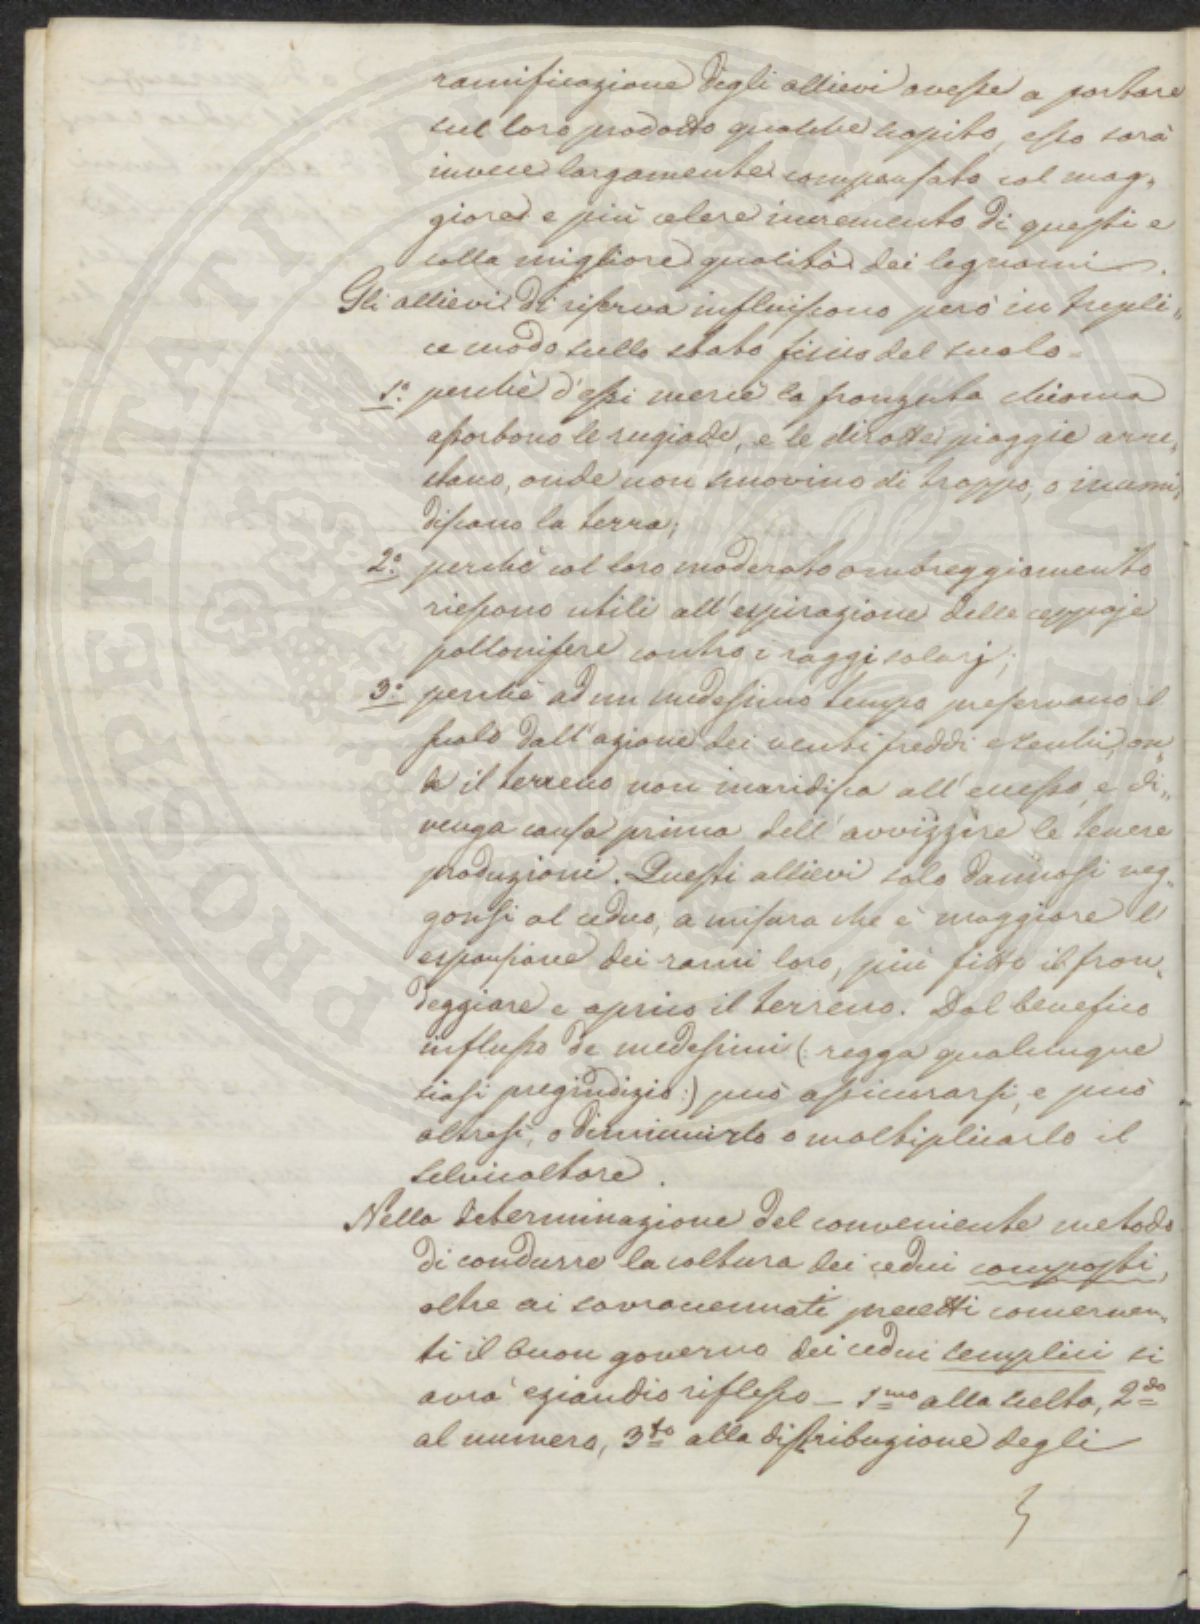 ramificazione degli allievi avesse a portare
sul loro prodotto qualche scapito, esso sarà
invece largamente compensato col mag-
giore e più celere incremento di questi e
colla migliore qualità dei legnami.
Gli allievi di riserva influiscono però in tripli-
ce modo sullo stato fisico del suolo.
1° perchè d'essi mercè la fronzuta chioma
assorbono le rugiade, e le dirotte pioggie arre-
stano, onde non smovino di troppo, o inumi-
discano la terra;
2° perchè col loro moderato ombreggiamento
riescono utili all'espirazione delle ceppaje
pollonifere contro i raggi solarj;
3° perchè ad un medesimo tempo preservano il
suolo dall'azione dei venti freddi e secchi, on-
de il terreno non inaridisca all'eccesso, e di-
venga causa prima dell'avvizzire le tenere
produzioni. Questi allievi solo dannosi veg-
gonsi al ceduo, a misura che è maggiore l'
espansione dei rami loro, più fitto il fron-
deggiare e aprico il terreno. Dal benefico
influsso de medesimi (: regga qualunque
siasi pregiudizio :) può assicurarsi, e può
altresì, o diminuirlo o moltiplicarlo il
selvicoltore.
Nella determinazione del conveniente metodo
di condurre la coltura dei cedui composti,
oltre ai sovracennati precetti concernen-
ti il buon governo dei cedui semplici si
avrà eziandio riflesso – 1mo alla scelta, 2do
al numero, 3to alla distribuzione degli
PROSPERITATI PUBLICAE